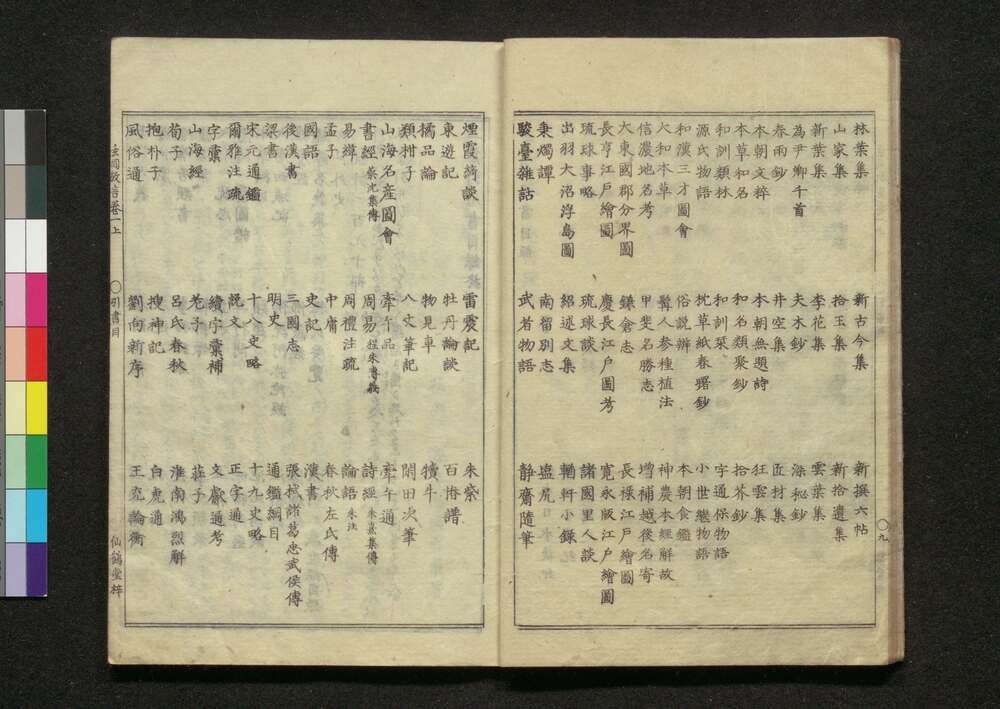 林葉集　新古今集　新撰六帖
山家集　拾玉集　新拾遺集
新葉集　李花集　雲葉集
為尹卿千首　夫木鈔　深秘鈔
春雨鈔　井空集　匠材集
本朝文粹　本朝無題詩　狂雲集
本草和名　和名類聚鈔　拾芥鈔
和訓類林　和訓栞　字通保物語
源氏物語　枕草紙春曙鈔　小世繼物語
和漢三才圖會　俗説辨　本朝食鑑
大和本草　人参種植法　神農本經解故
信濃地名考　甲斐名勝志　増補越後名寄
大東國郡分界圖　鎌倉志　長禄江戸繪圖
長亨江戸繪圖　慶長江戸圖考　寛永版江戸繪圖
琉球事略　琉球談　諸國里人談
出羽大沼浮島圖　紹述文集　輶軒小録
秉燭譚　南留別志　盬尻
駿臺雜話　武者物語　静齋隨筆
〇九
煙霞綺談　雷震記　朱紫
東遊記　牡丹論談　百椿譜
橘品論　物見車　犢牛
類柑子　八丈筆記　閑田次筆
山海名産圖會　牽牛品　牽牛通
書經蔡沈集傳　周易程朱傳義　詩經朱熹集傳
易縛　周禮注疏　論語朱注
孟子　中庸　春秋左氏傳
國語　史記　漢書
後漢書　三國志　張栻諸葛忠武侯傳
梁書　明史　通鑑綱目
宋元通鑑　十八史略　十九史略
爾雅注疏　説文　正字通
字彙　續字彙補　文獻通考
山海經　老子　莊子
荀子　呂氏春秋　淮南鴻烈解
抱朴子　搜神記　白虎通
風俗通　劉向新序　王充論衡
玄同放言卷一上　〇引書目　仙鶴堂梓